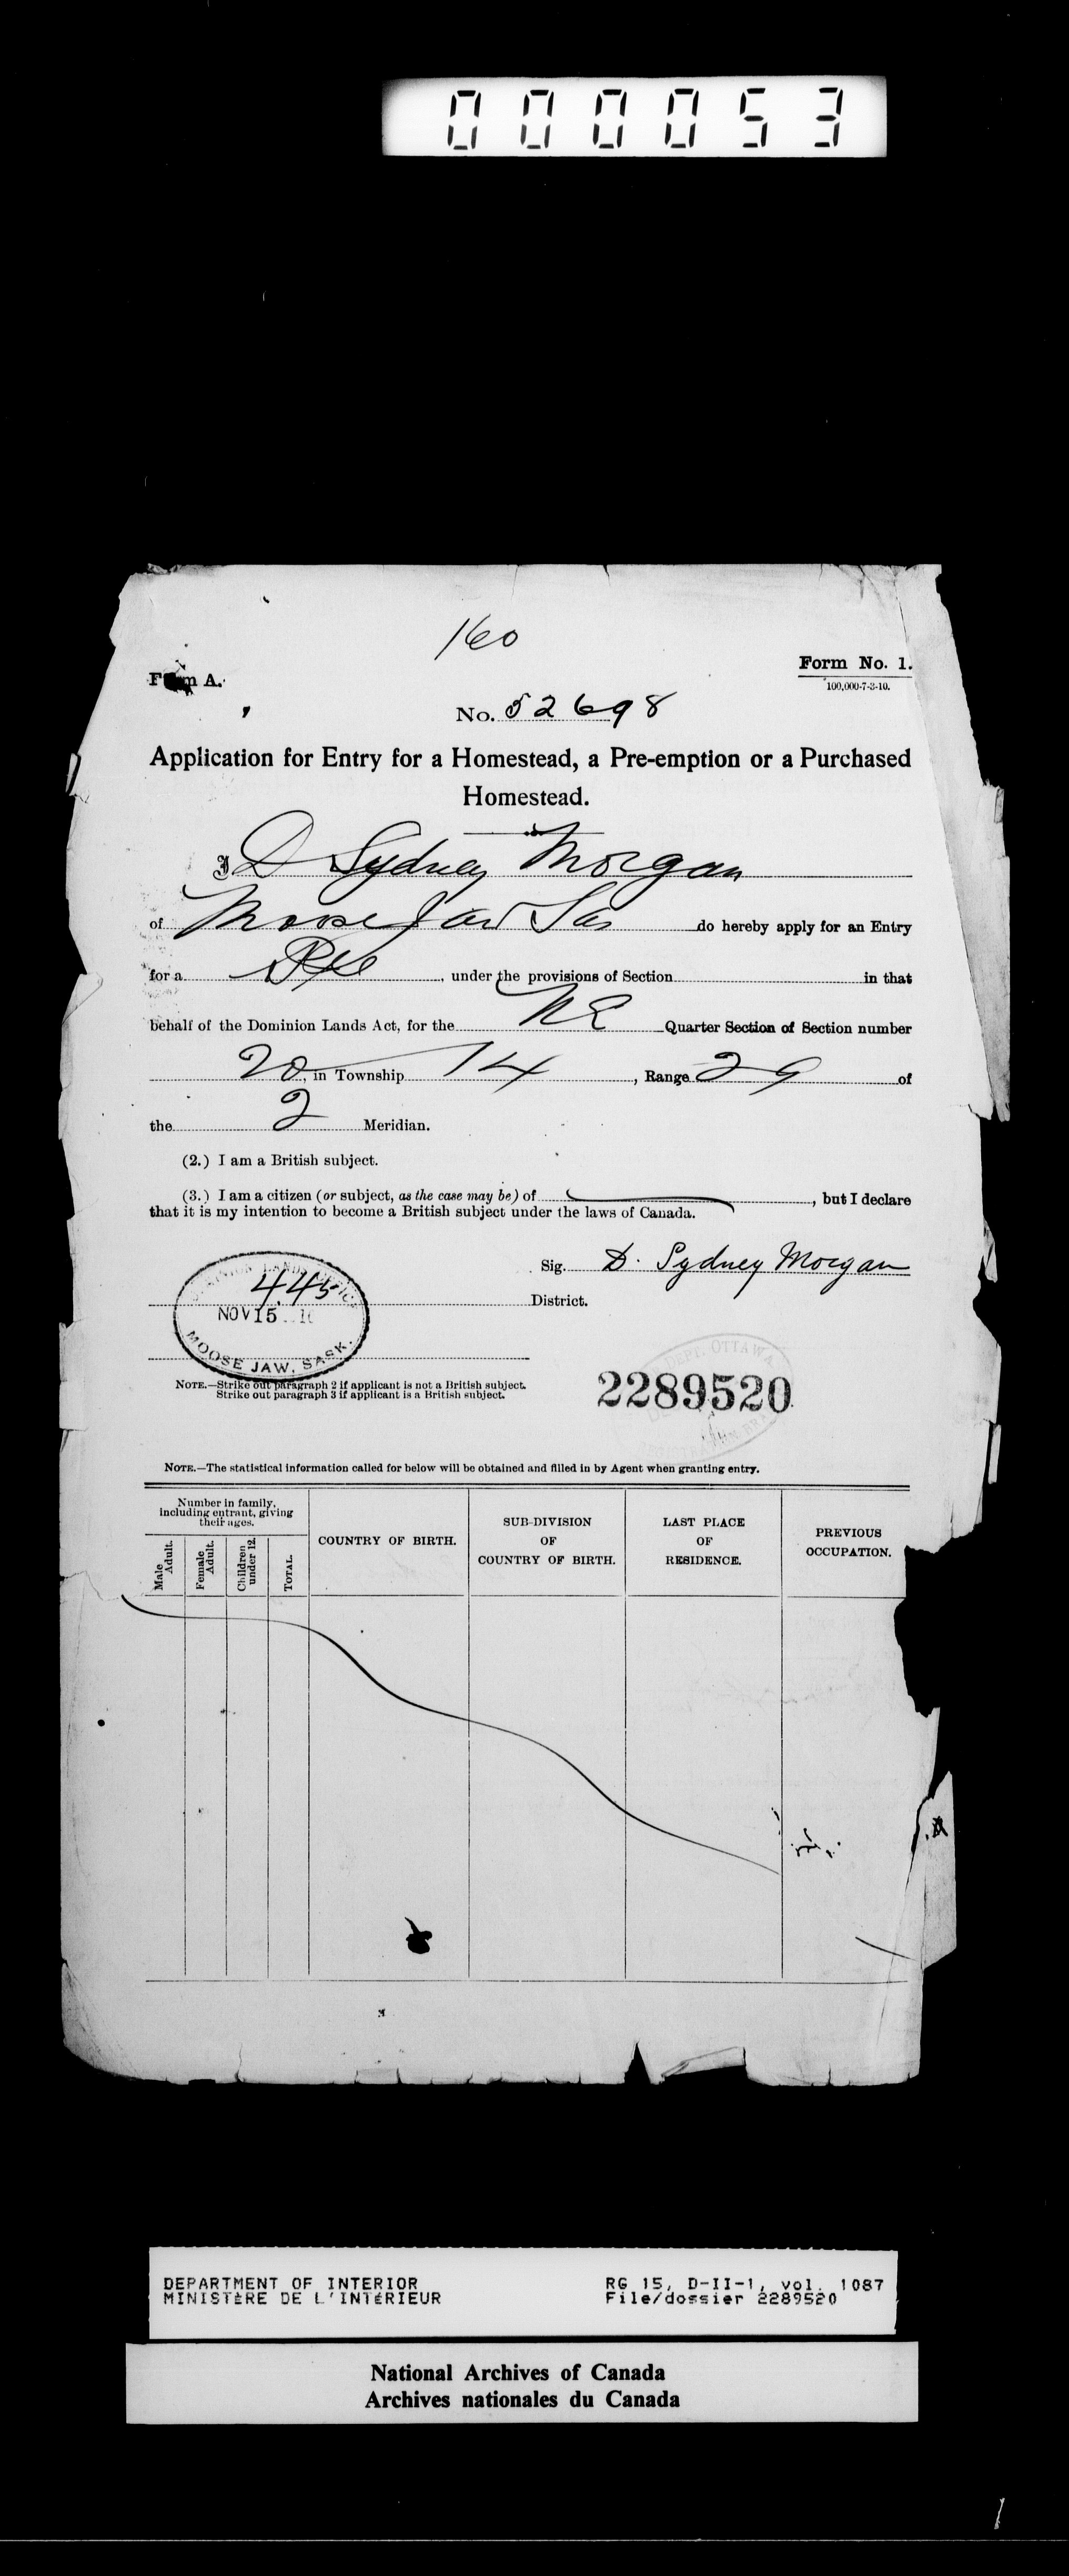 000053
160
Form A.
Form No. 1.
100,000-7-3-10.
No. 52698
Application for Entry for a Homestead, a Pre-emption or a Purchased
Homestead.
I D Sydney Morgan
of Moose Jaw Sas do hereby apply for an Entry
for a , under the provisions of Section in that
behalf of the Dominion Lands Act, for the NE Quarter Section of Section number
20, in Township 14, Range 29 of
the 2 Meridian.
(2.) I am a British subject.
(3.) I am a citizen (or subject, as the case may be) of , but I declare
that it is my intention to become a British subject under the laws of Canada.
Sig. D. Sydney Morgan
District.
DOMINION LANDS OFFICE
4.45
NOV 15
MOOSE JAW, SASK.
NOTE.—Strike out paragraph 2 if applicant is not a British subject.
Strike out paragraph 3 if applicant is a British subject.
DEPT. OTTAWA
2289520
NOTE.—The statistical information called for below will be obtained and filled in by Agent when granting entry.
Number in family,
including entrant, giving
their ages.
Male Adult.
Female Adult.
Children under 12.
TOTAL.
COUNTRY OF BIRTH.
SUB-DIVISION
OF
COUNTRY OF BIRTH.
LAST PLACE
OF
RESIDENCE.
PREVIOUS
OCCUPATION.
DEPARTMENT OF INTERIOR
MINISTÈRE DE L'INTÉRIEUR
RG 15, D-II-1, vol. 1087
File/dossier 2289520
National Archives of Canada
Archives nationales du Canada